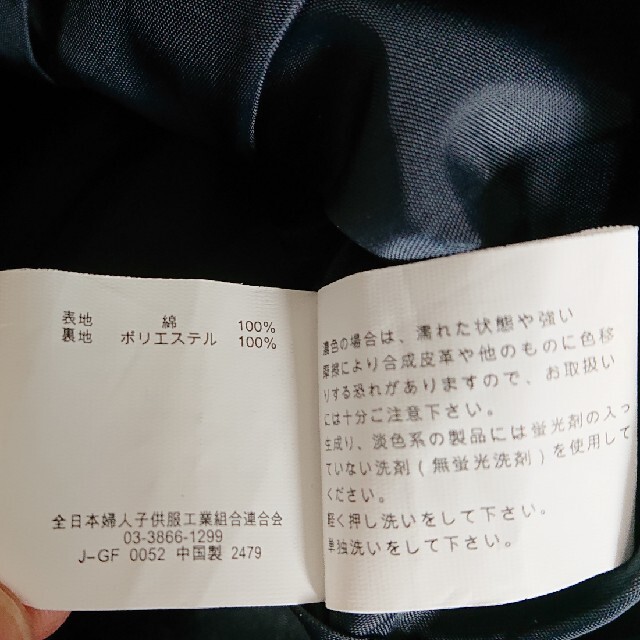 表地 綿 100%
裏地 ポリエステル 100%
全日本婦人子供服工業組合連合会
03-3866-1299
J-GF 0052 中国製 2479
濃色の場合は、濡れた状態や強い
摩擦により合成皮革や他のものに色移
りする恐れがありますので、お取扱い
には十分ご注意下さい。
生成り、淡色系の製品には蛍光剤の入っ
ていない洗剤(無蛍光洗剤)を使用して
ください。
軽く押し洗いをして下さい。
単独洗いをして下さい。